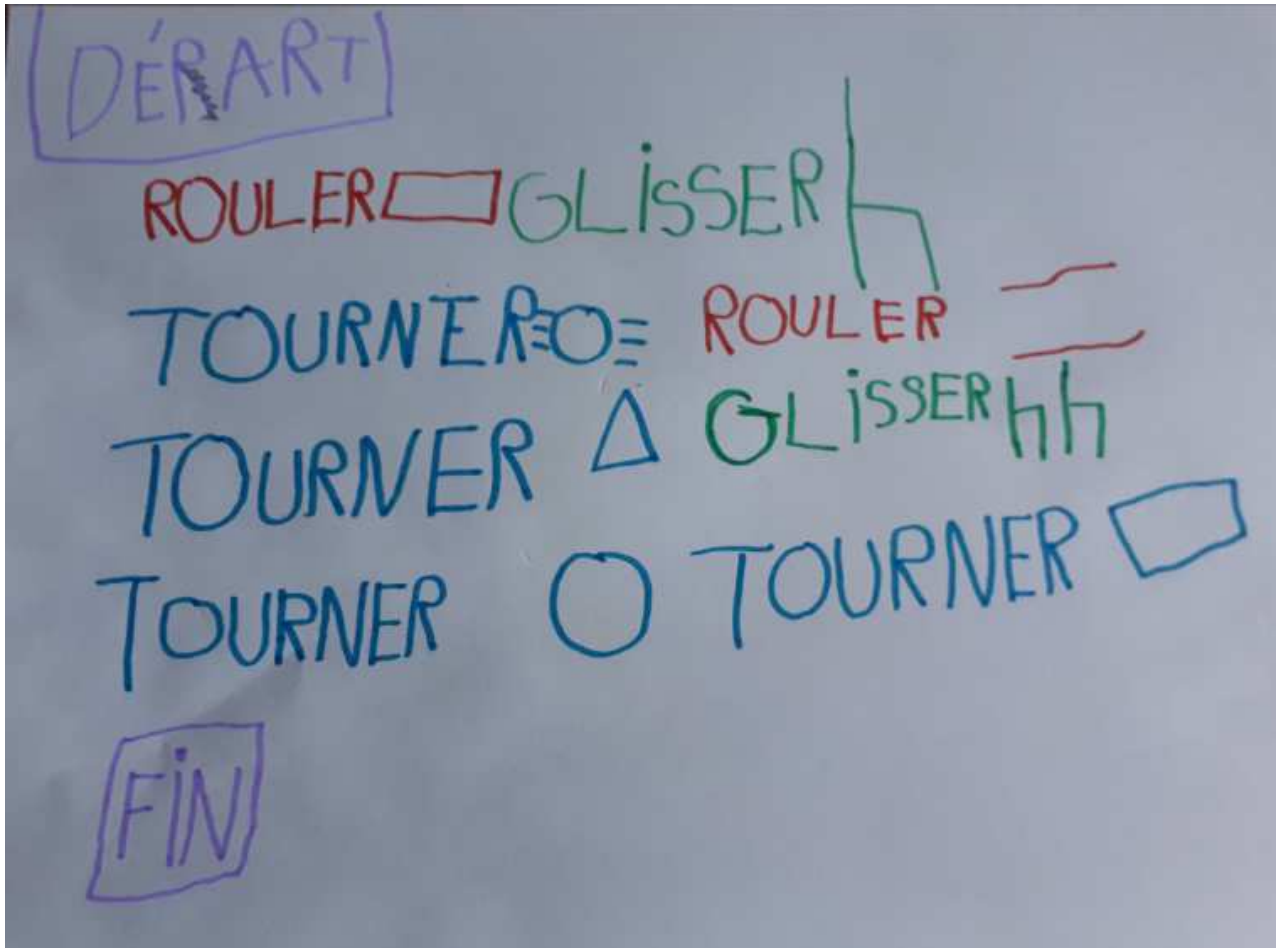 DÉPART
ROULER GLISSER
TOURNER ROULER
TOURNER GLISSER
TOURNER TOURNER
FIN